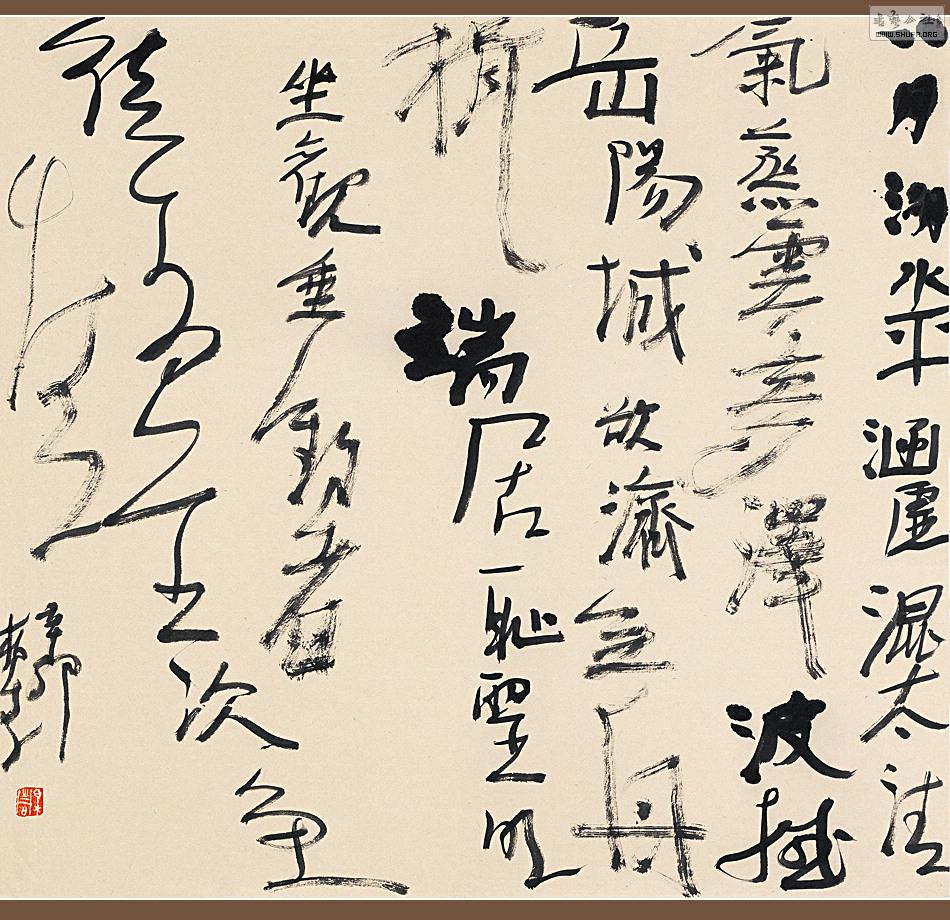 書藝公社
WWW.SHUFA.ORG
八月湖水平涵虛混太清
氣蒸雲夢澤波撼
岳陽城欲濟無舟
楫端居恥聖明
坐觀垂釣者
徒
辛卯